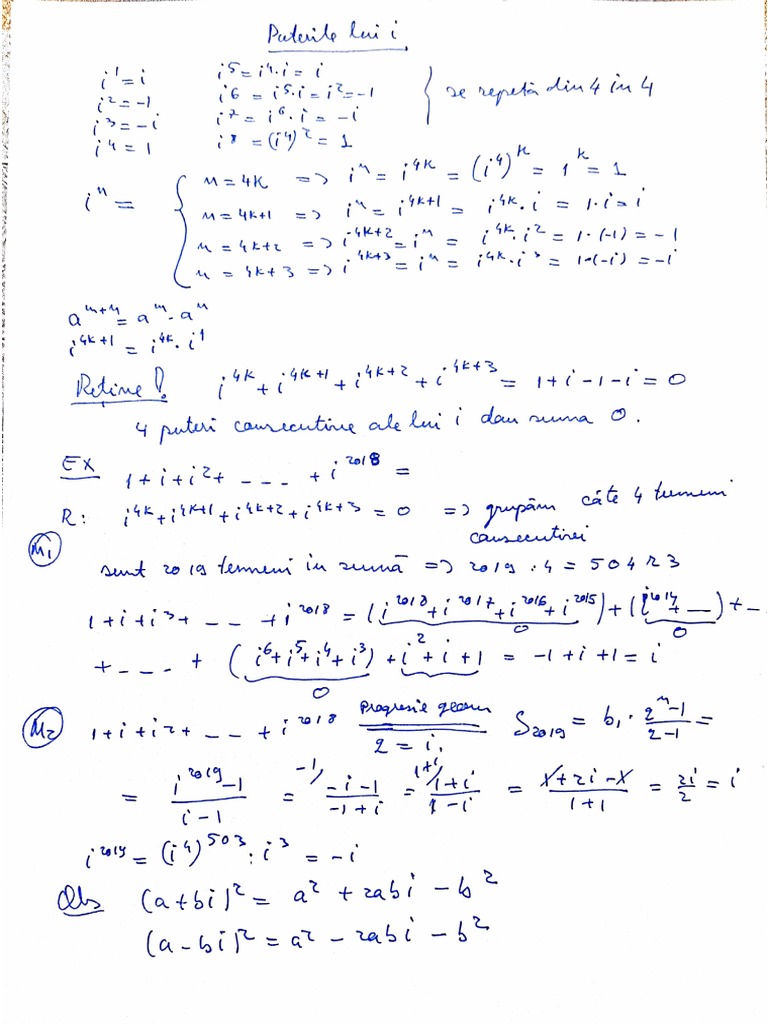 Puterile lui i
i¹ = i    i⁵ = i⁴·i = i
i² = -1    i⁶ = i⁵·i = i² = -1    } se repetă din 4 în 4
i³ = -i    i⁷ = i⁶·i = -i
i⁴ = 1    i⁸ = (i⁴)² = 1
iⁿ = { n = 4k => iⁿ = i^{4k} = (i⁴)^k = 1^k = 1
n = 4k+1 => iⁿ = i^{4k+1} = i^{4k}·i = 1·i = i
n = 4k+2 => i^{4k+2} = iⁿ = i^{4k}·i² = 1·(-1) = -1
n = 4k+3 => i^{4k+3} = iⁿ = i^{4k}·i³ = 1·(-i) = -i
a^{m+n} = a^m·a^n
i^{4k+1} = i^{4k}·i¹
Reține! i^{4k} + i^{4k+1} + i^{4k+2} + i^{4k+3} = 1+i-1-i = 0
4 puteri consecutive ale lui i dau suma 0.
EX 1+i+i²+ - - - + i^{2018} =
R: i^{4k}+i^{4k+1}+i^{4k+2}+i^{4k+3} = 0 => grupăm câte 4 termeni
consecutivi
M1
sunt 2019 termeni în sumă => 2019 : 4 = 504 r 3
1+i+i³+ - - - + i^{2018} = (i^{2018}+i^{2017}+i^{2016}+i^{2015}) + (i^{2014}+ - -) + - -
0 0
+ - - - + (i⁶+i⁵+i⁴+i³) + i²+i+1 = -1+i+1 = i
0
M2 1+i+i²+ - - + i^{2018} progresie geom q = i. S_{2019} = b₁· (qⁿ-1)/(q-1) =
= (i^{2019}-1)/(i-1) = ^{-1)} (-i-1)/(-1+i) = ^{1+i)} (1+i)/(1-i) = (1+2i-1)/(1+1) = 2i/2 = i
i^{2019} = (i⁴)^{503}·i³ = -i
Obs (a+bi)² = a² + 2abi - b²
(a-bi)² = a² - 2abi - b²